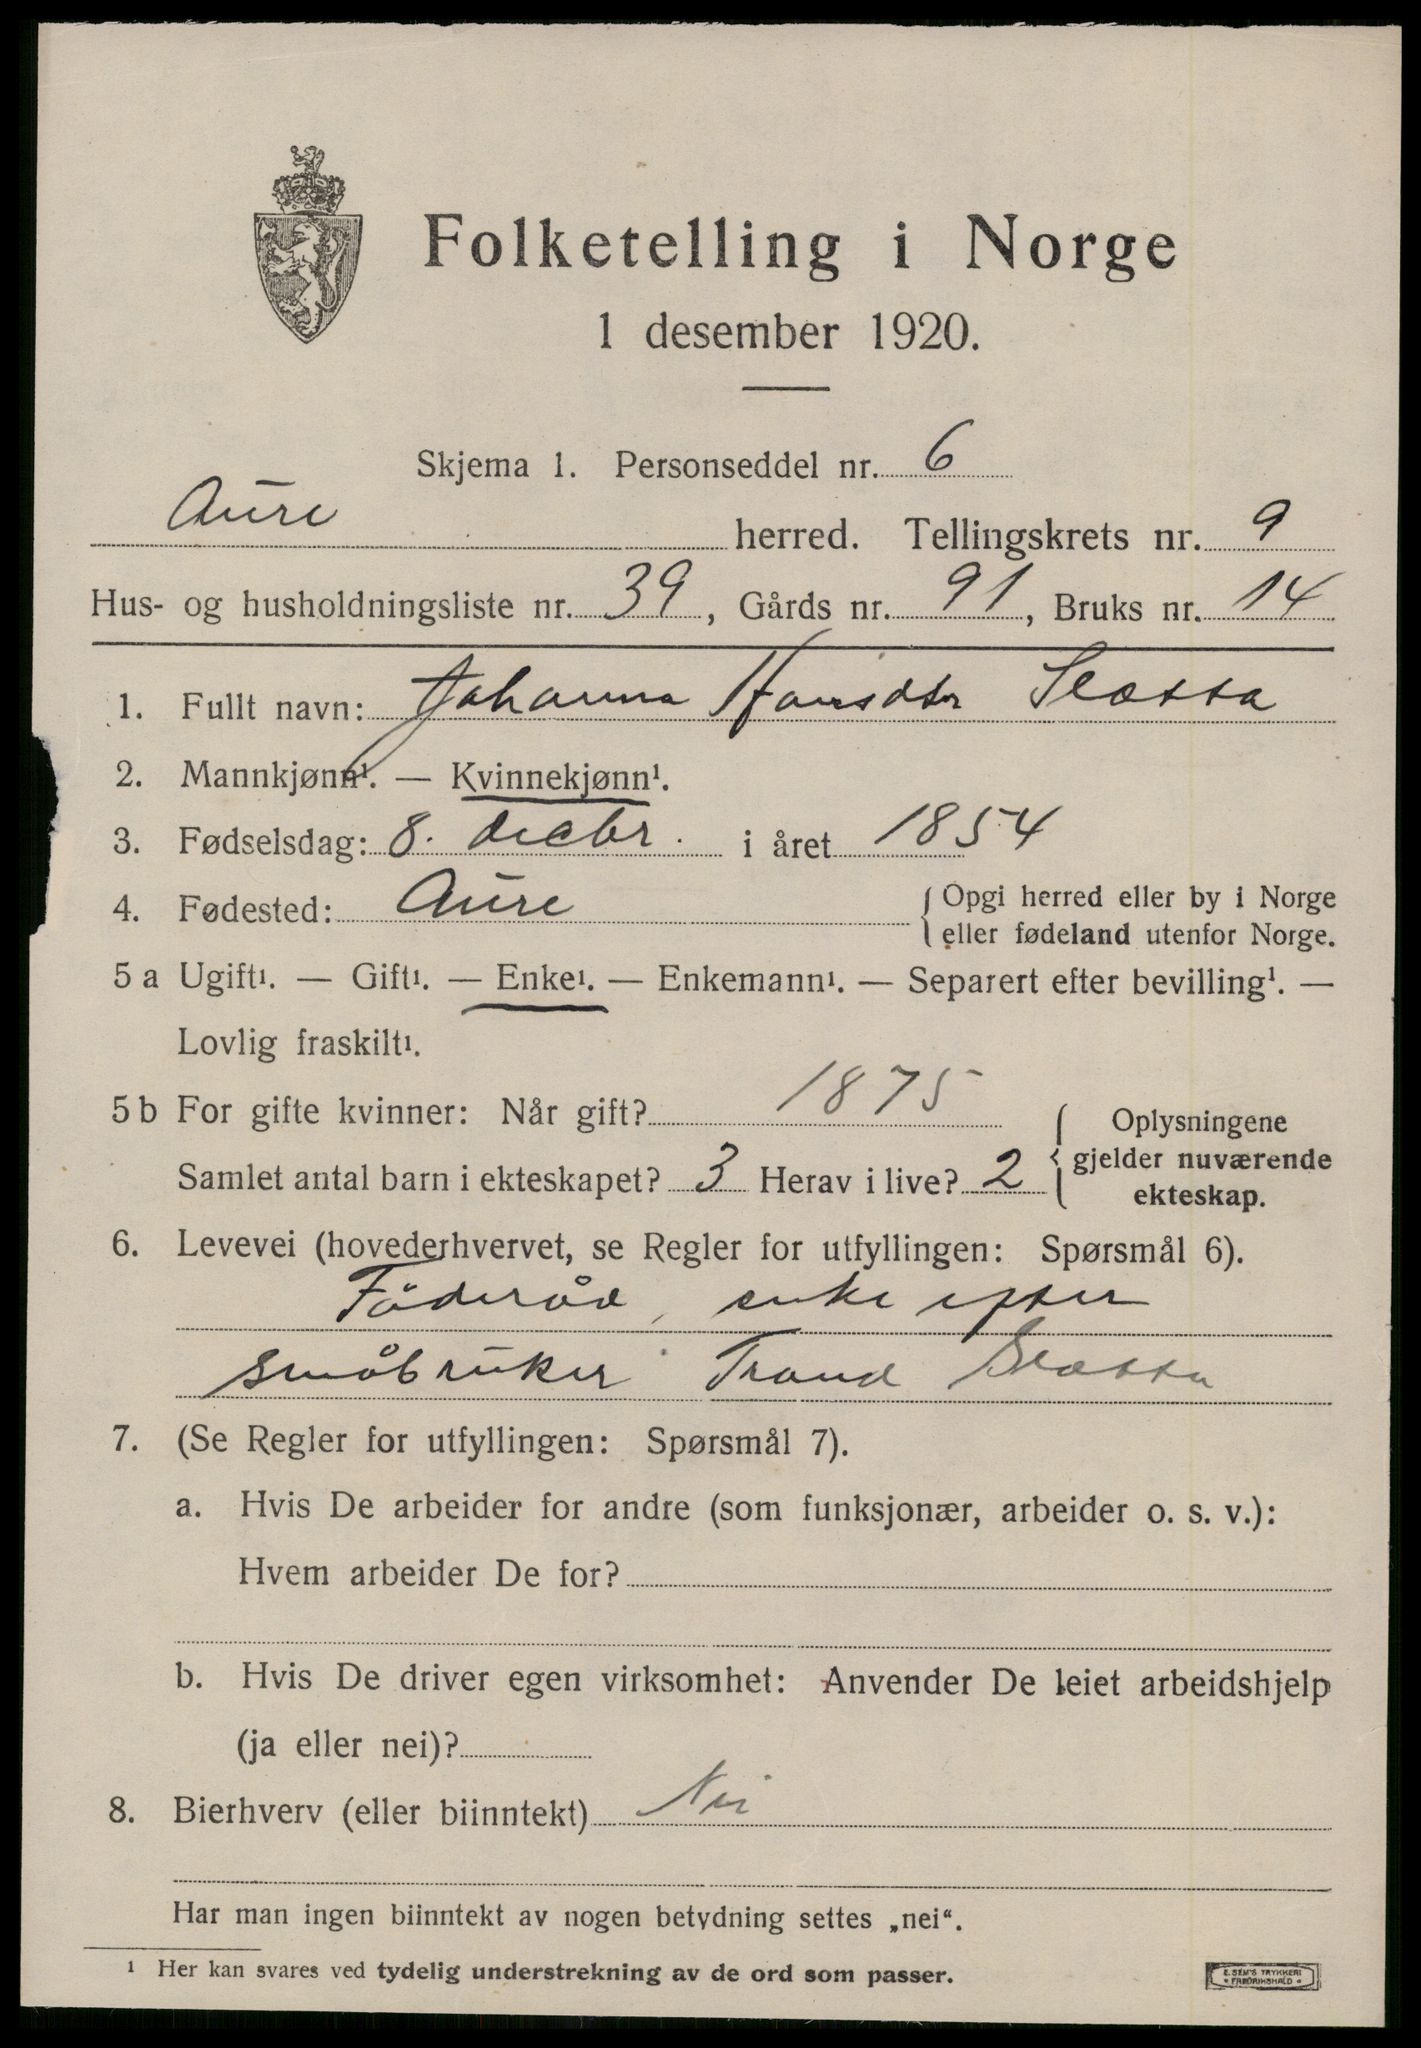 Folketelling i Norge
1 desember 1920.
Skjema 1. Personseddel nr. 6
Aure herred. Tellingskrets nr. 9
Hus- og husholdningsliste nr. 39, Gårds nr. 91, Bruks nr. 14
1. Fullt navn: Johanna Hansdtr Slætta
2. Mannkjønn¹. — Kvinnekjønn¹.
3. Fødselsdag: 8. decbr. i året 1854
4. Fødested: Aure { Opgi herred eller by i Norge
eller fødeland utenfor Norge.
5 a Ugift¹. — Gift¹. — Enke¹. — Enkemann¹. — Separert efter bevilling¹. —
Lovlig fraskilt¹.
5 b For gifte kvinner: Når gift? 1875
Samlet antal barn i ekteskapet? 3 Herav i live? 2 { Oplysningene
gjelder nuværende
ekteskap.
6. Levevei (hovederhvervet, se Regler for utfyllingen: Spørsmål 6).
Föderåd, enke efter
småbruker Trond Slætta
7. (Se Regler for utfyllingen: Spørsmål 7).
a. Hvis De arbeider for andre (som funksjonær, arbeider o. s. v.):
Hvem arbeider De for?
b. Hvis De driver egen virksomhet: Anvender De leiet arbeidshjelp
(ja eller nei)?
8. Bierhverv (eller biinntekt) Nei
Har man ingen biinntekt av nogen betydning settes „nei“.
¹ Her kan svares ved tydelig understrekning av de ord som passer.
E. SEM'S TRYKKERI
FREDRIKSHALD